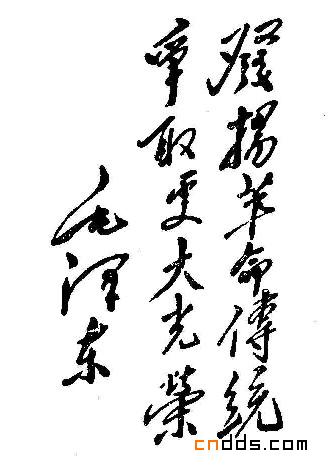 發揚革命傳統
爭取更大光榮
毛澤东
cndds.com